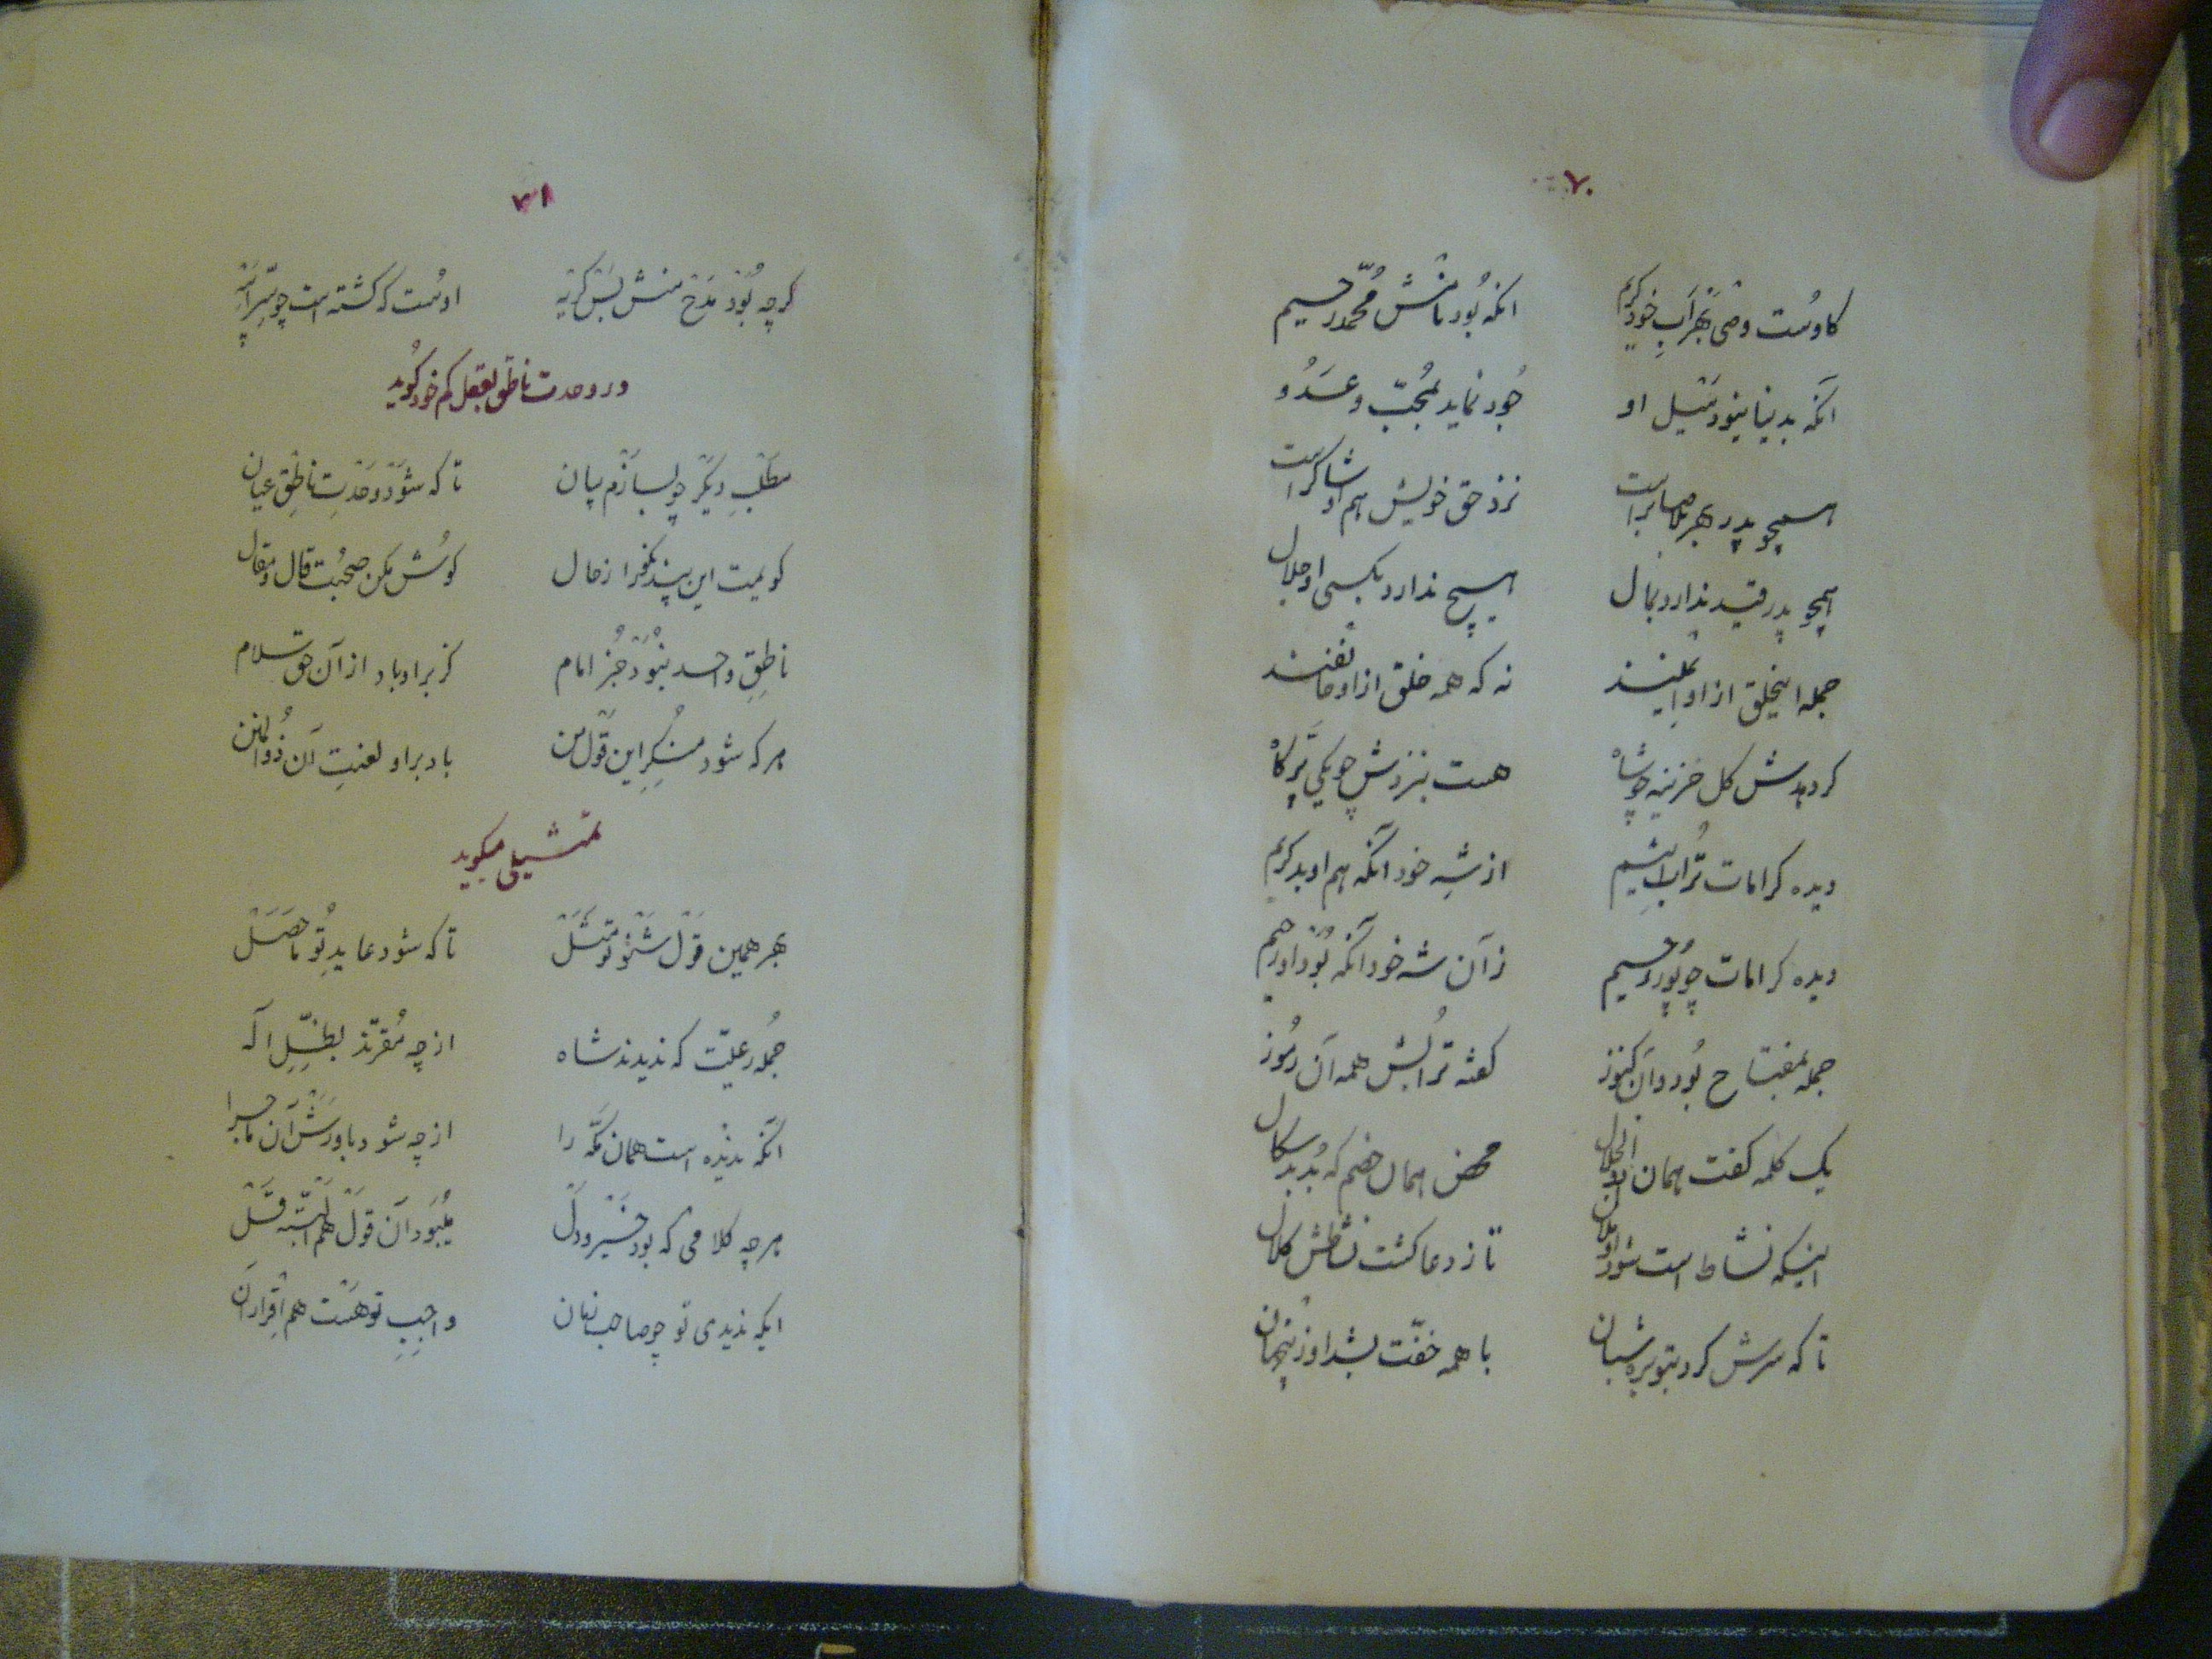 ۷۰
کاوست وصی بهر اب خود کریم انکه بود نامش محمد رحیم
انکه بدنیا نبود مثیل او جود نماید بمحب و عدو
همچو پدر بهر بلا صابر است نزد حق خویش هم او شاکر است
همچو پدر قید ندارد بمال هیچ ندارد بکسی او جلال
جمله اینخلق از او ایمنند نه که همه خلق از او خائفند
کردهدش کل خزینه چو شاه هست بنزدش چو یکی پر کاه
دیده کرامات تراب اثیم از شه خود انکه هم او بد کریم
دیده کرامات چو پور رحیم ز آن شه خود آنکه بود او رحیم
جمله بمفتاح بود وان کنوز کفته ترابش همه آن رموز
یک کلمه کفت همان محض همان خصم که بد بدسکال
اینکه نشاط است شود تا ز دعا کشت نشاطش کلال
تا که سرش کرد بتوبره شبان با همه خفت بشد او ز پنهان
۷۱
کرچه بود مدح منش بس کریه اوست که کشته است چو سر ابیه
در وحدت ناطق بعقل کم خود کوید
مطلب دیکر چو بسازم بیان تا که شود وحدت ناطق عیان
کویمت این پند نکفرا ز حال کوش بکن صحبت قال و مقال
ناطق واحد نبود جز امام کز بر او باد از آن حق سلام
هر که شود منکر این قول من باد بر او لعنت آن ذوالمنن
تمثیلی میکوید
بهر همین قول شنو تو مثل تا که شود عاید تو ماحصل
جمله رعیت که ندیدند شاه از چه مقرند بظل اله
انکه ندیده است همان مکه را از چه شود باورش آن ماجرا
هرچه کلامی که بود خیر و دل ببود آن قول هم البته قل
ایکه ندیدی تو چو صاحب زمان واجب تو هست هم اقرار آن